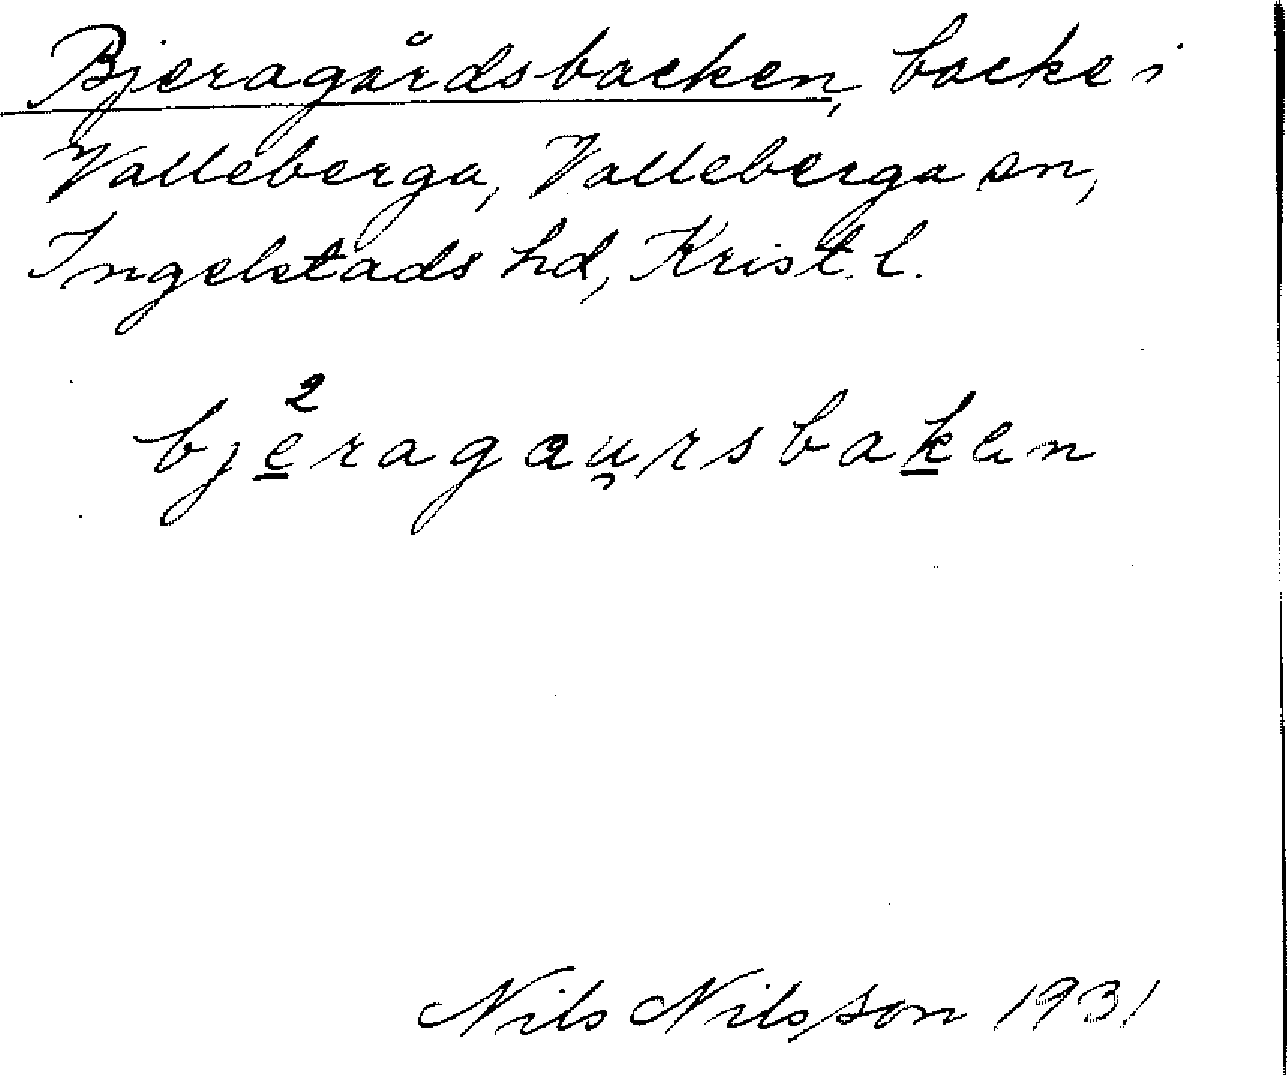 Bjeragårdsbacken, backe i
Valleberga, Valleberga sn,
Ingelstads hd, Krist. l.
bje̲²ragau̯rsbak̲en
Nils Nilsson 1931